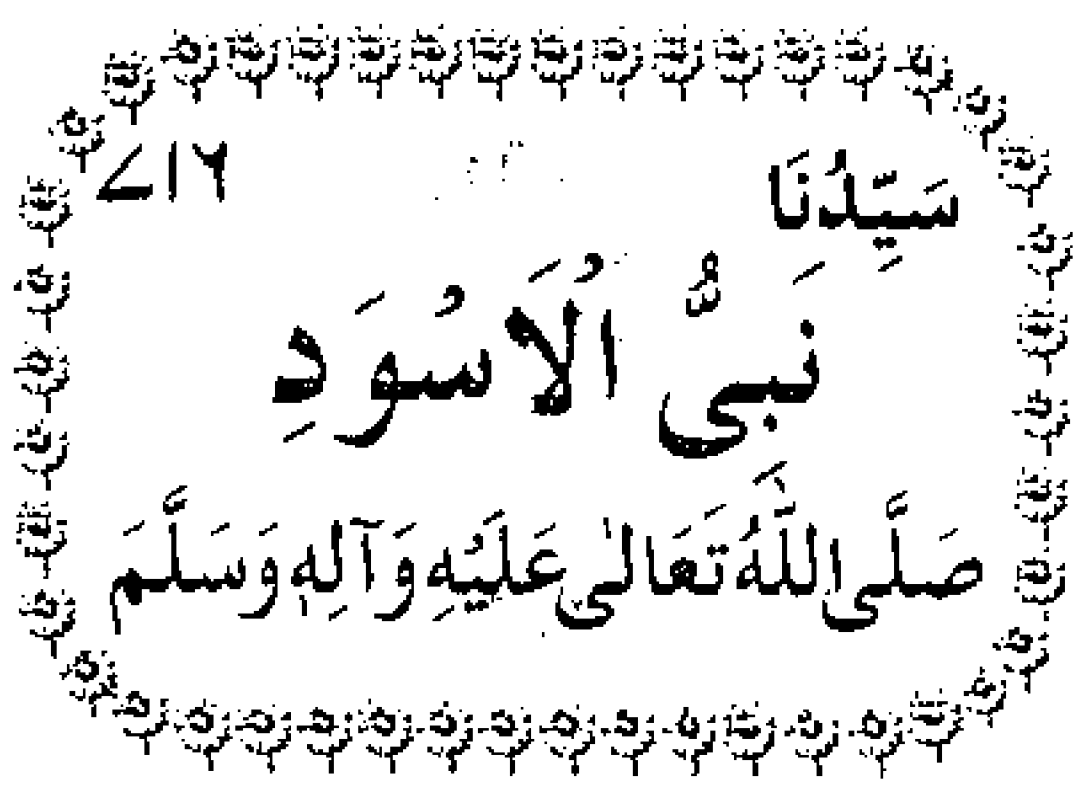 سَيِّدُنَا ۷۱۲
نَبِىُّ الْاَسْوَدِ
صَلَّى اللّٰهُ تَعَالٰى عَلَيْهِ وَآلِهٖ وَسَلَّمَ